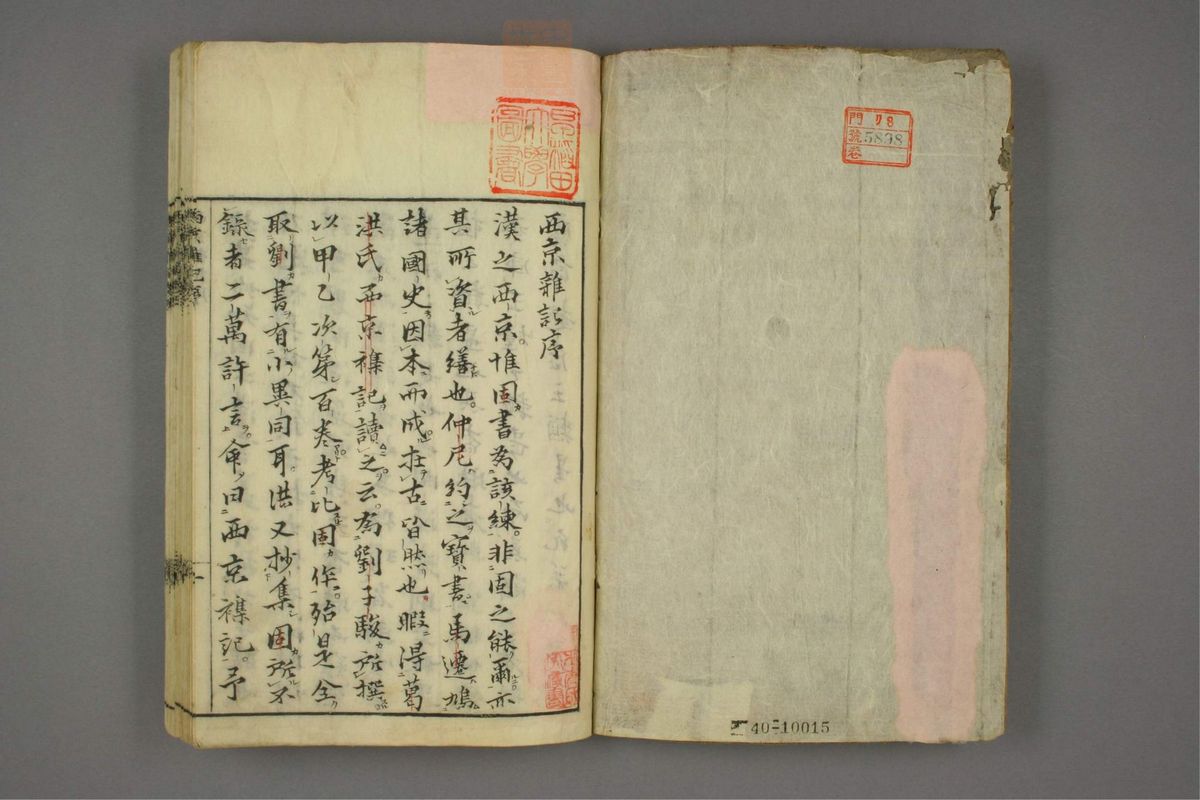 西京雜記序
漢之西京。惟固書為該練。非固之能爾。亦
其所資者繕也。仲尼約之寶書。馬遷鳩
諸國史。因本而成。在古皆然也。暇得葛
洪氏西京襍記。讀之云。為劉子駿所撰。
以甲乙次第百卷。考比固作。殆是全
取劉書。有小異同耳。洪又抄集固所不
錄者二萬許言。命曰西京襍記。予
早稲田
大學
圖書
門 リ8
號 5838
卷
40-10015